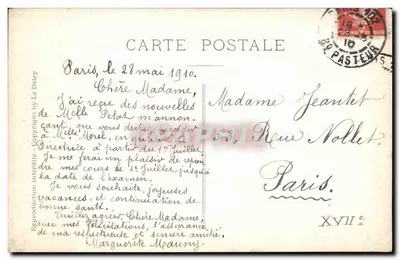 CARTE POSTALE
Paris, le 28 mai 1910.
Chère Madame,
J'ai reçue des nouvelles
de Melle Petot m'annon-
çant, que vous deviez
à Melle Morel,
Directrice à partir du 1er Juillet.
Je me ferai un plaisir de
mes cours le 1er Juillet jusqu'à
la date de l'examen.
Je vous souhaite, joyeuses
vacances, et continuation de
bonne santé.
Veuillez agréer, Chère Madame,
avec mes félicitations, l'assurance
de ma respectueuse et sincère amitié.
Marguerite Mauny
Madame Jeantet
Rue Nollet,
Paris.
XVII e
PASTEUR
Reproduction interdite - Copyright by Le Deley